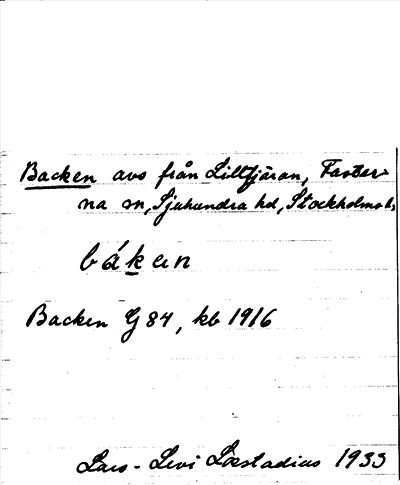 Backen avs från Lilltjäran, Faster-
na sn, Sjuhundra hd, Stockholms l.
bákan
Backen G 84, kb 1916
Lars-Levi Læstadius 1933